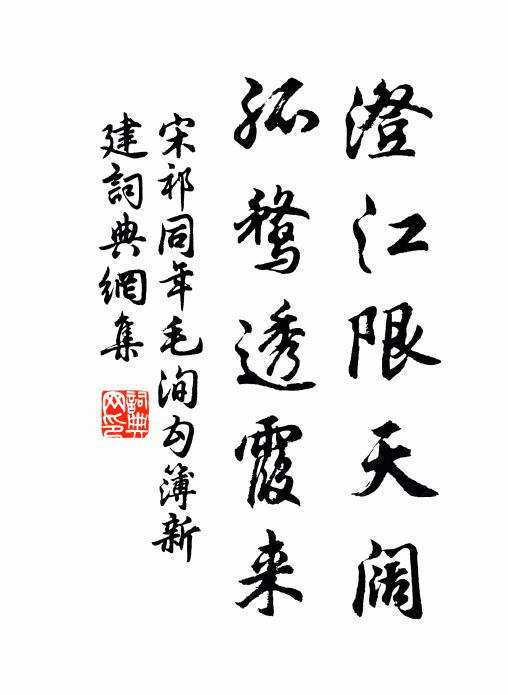 澄江限天阔
孤鹜透霞来
宋祁同年毛洵勾簿新
建詞典網集
詞典
网印